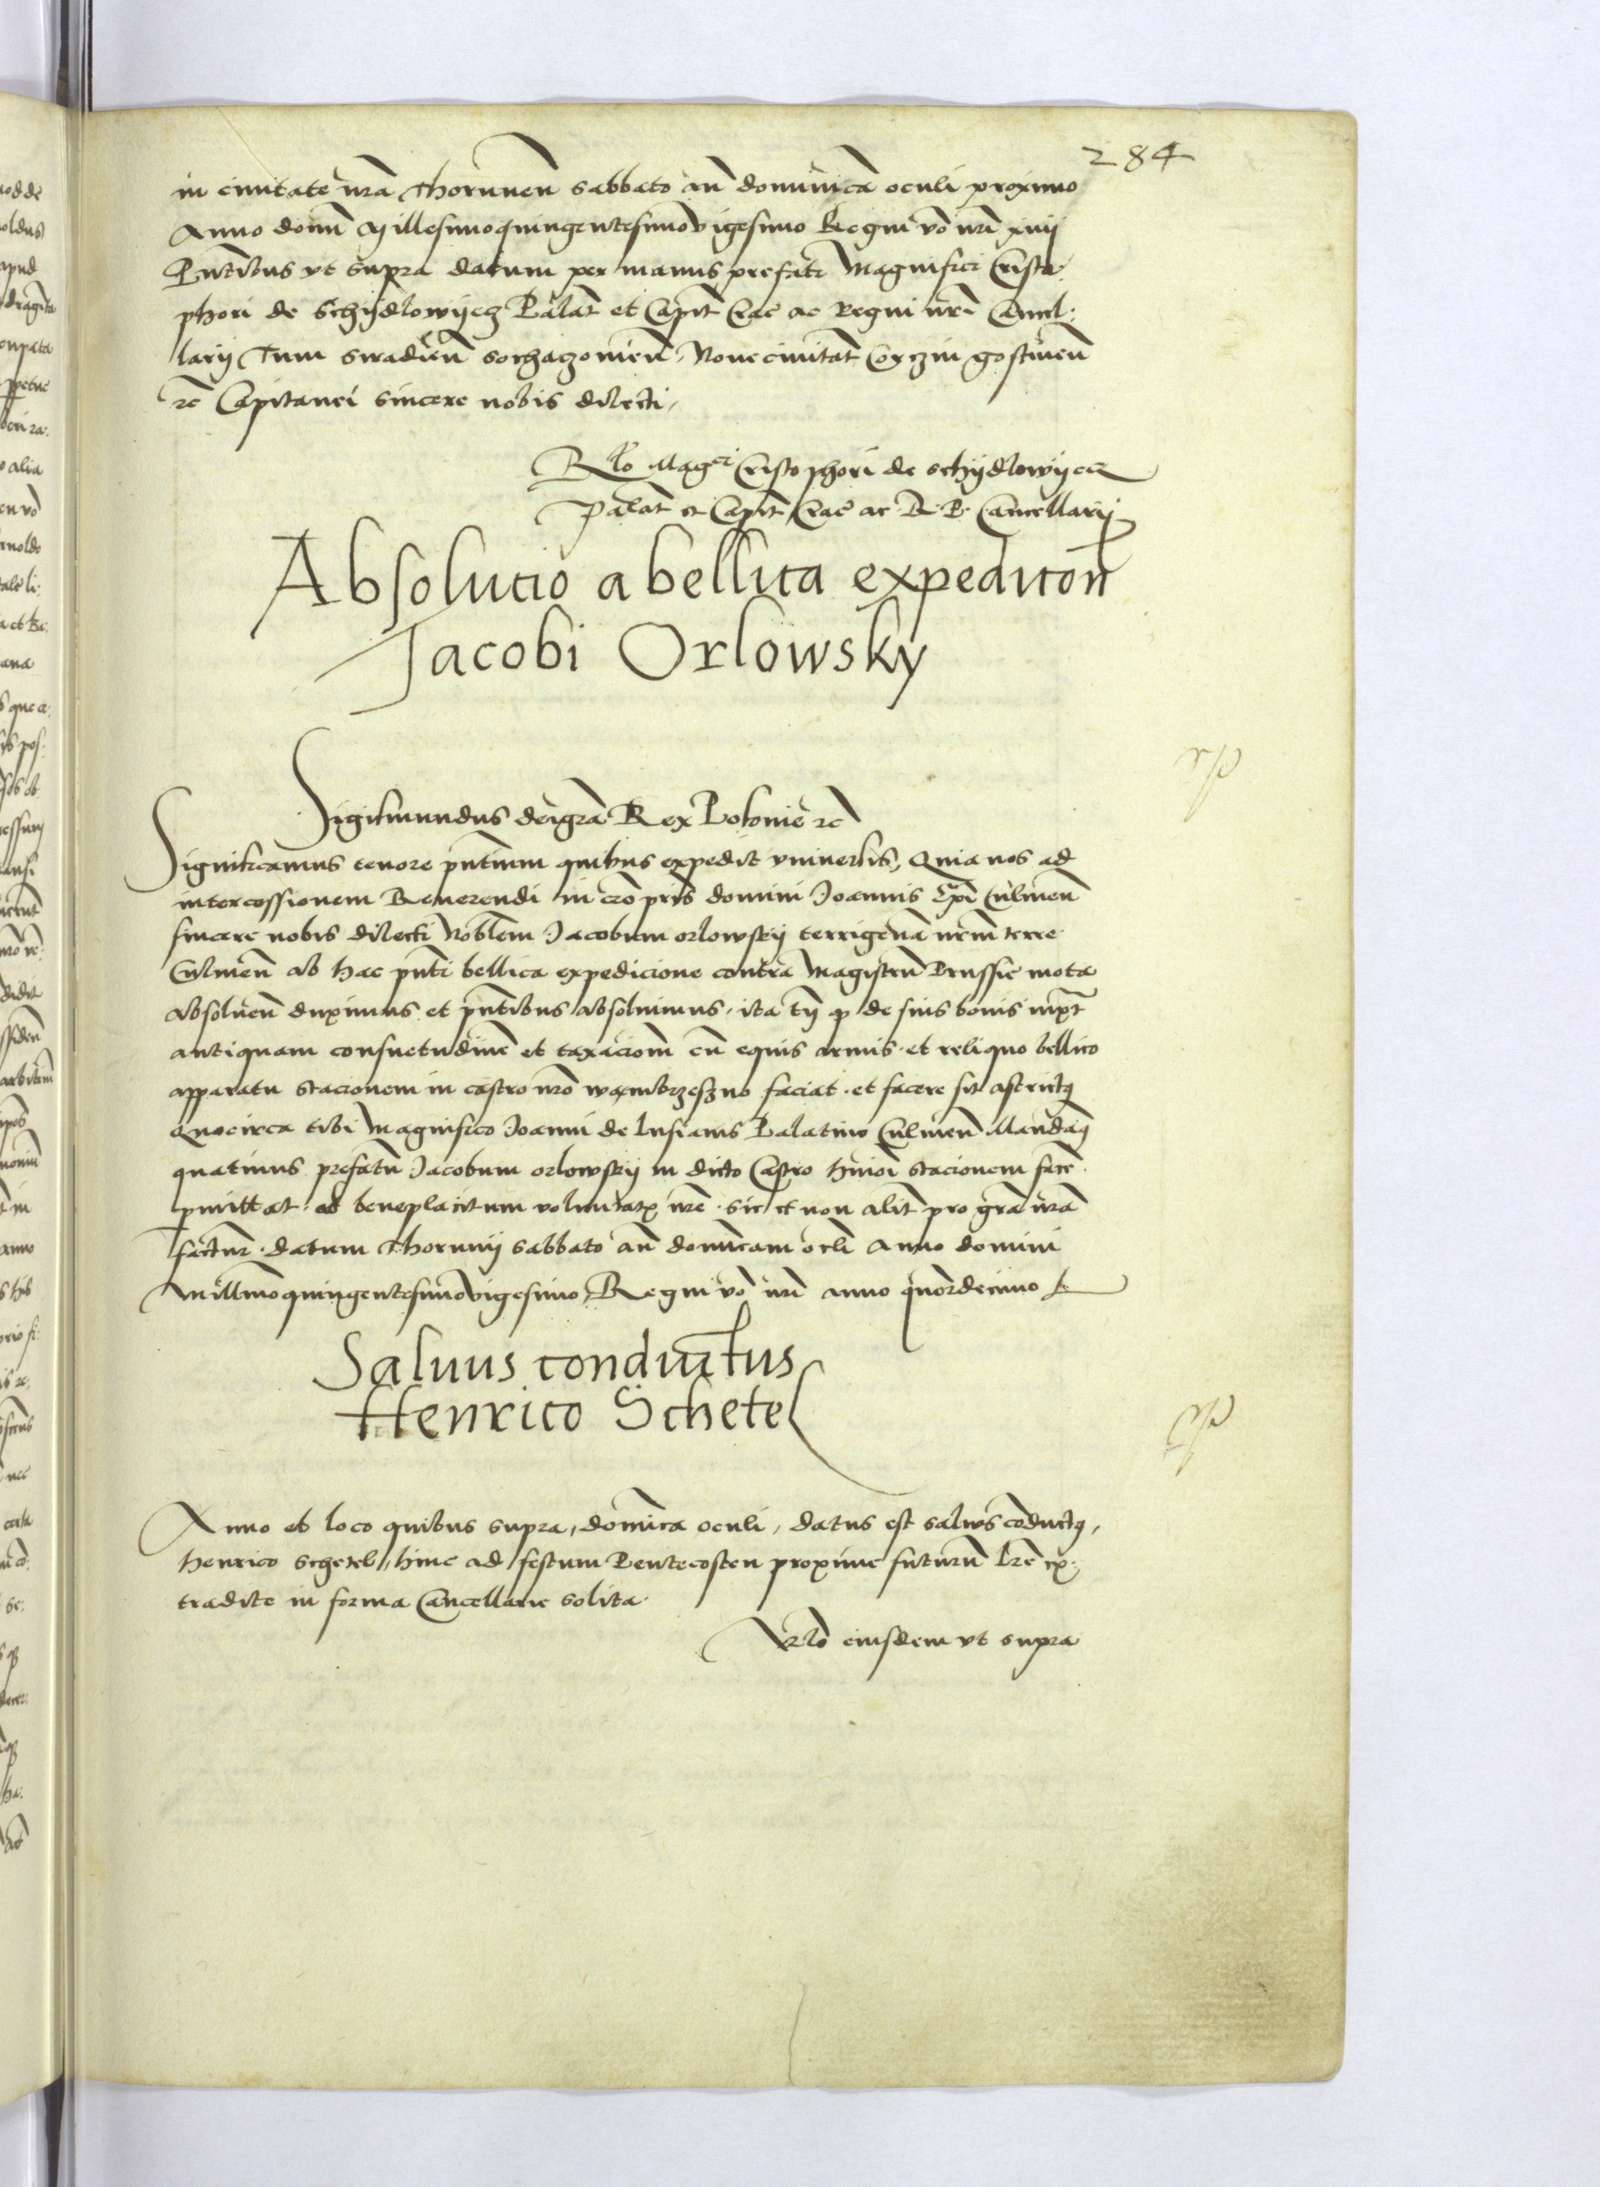 284
in ciuitate nr̃a Thorunien̄ sabbato an̄ dominicā oculi proximo
Anno domī Millesimoquingentesimovigesimo Regni vo nr̃i xiiij
P̄ntibus vt supra datum per manus prefati Magnifici Cristo
phori de Schijdlowijecz Palat̄ et Capit̄ Crac̄ ac Regni nr̃i Cancel:
larij Tum Siradien̄ Sochaczouien̄ Noueciuitat̄ Corczin gostinen̄
zc̄ Capitanei sincere nobis dilecti,
Rlo Mag̃ci Cristophori de schijdlowijecz
Palat̄ et Capit̄ Crac̄ ac R. P. Cancellarij
Absolucio a bellica expediton̄
Jacobi Orlowsky
Sigismundus dei gr̃a Rex Polonie zc̄
Significamus tenore p̄ntium quibus expedit vniuersis, Quia nos ad
intercessionem Reuerendi in cro pr̃is domini Joannis Ep̄i Culmen̄
sincere nobis dilecti Nobĺem Jacobum orlowskij terrigenā nr̃m terre
Culmen̄ ab hac p̄nti bellica expedicione contra Magistrū Prussie mota
absoluen̄ duximus et p̄ntibus absoluimus, ita tn̄ q de suis bonis iuxt̄
antiquam consuetudinē et taxaciom̄ cū equis armis et reliquo bellico
apparatu stacionem in castro nr̃o wambrzeszno faciat, et facere sit astrictꝫ
Quocirca tibi Magnifico Joanni de lusianis Palatino Culmen̄ Mandaꝫ
quatinus prefatū Jacobum orlowskij in dicto Castro hmōi stacionem facē
p̱mittat ad beneplacitum voluntatꝭ nr̃e, sic et non alit̄ pro gr̃a nr̃a
factur̄, datum Thorunij sabbato an̄ domīcam ocli Anno domini
Millmōquingentesimovigesimo, Regni vo nr̃i anno quordecimo
Saluus conductus
Henrico Schetel
Anno et loco quibus supra, domīca oculi, datus est saluus coductꝫ,
henrico Schetel, hinc ad festum Pentecosten proxime futurū lr̃e ex:
tradite in forma Cancellarie solita
Rlo eiusdem vt supra